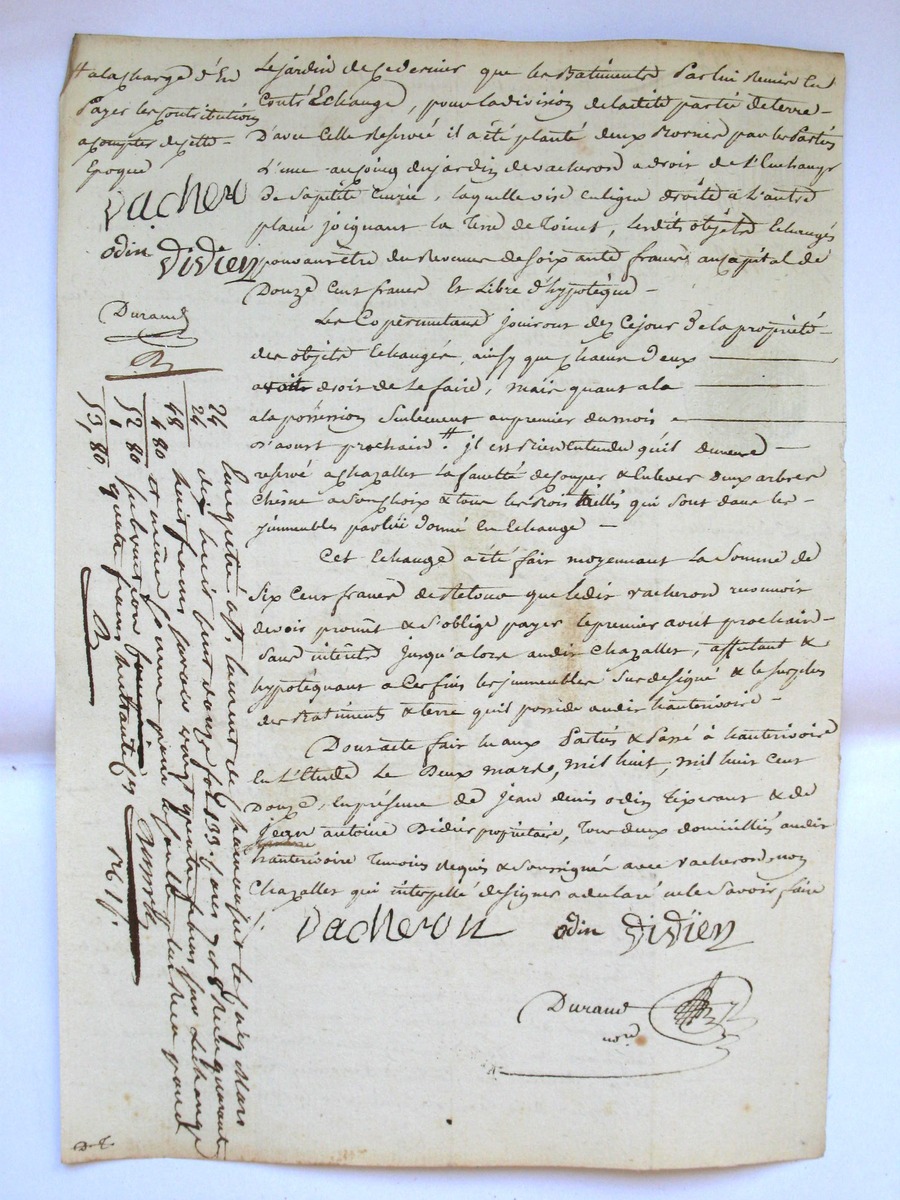 # a la charge d'En
Payer les contributions
a compter de cette
Epoque
vacheron
odin Didier
Durand
Le jardin de ce dernier que les Batiments Par lui Remis En
Contr'Echange, pour la division de la dite partie de terre
D'avec Celle Reservée il a été planté deux Bornes par les Parties
L'une au joing du jardin de vacheron a droit de L'
De sa petite Ecurie, laquelle vise en ligne droite à L'autre
placée joignant la Terre de Loinet, lesdits objets Echangés
pouvant être du Revenu de soixante francs au Capital de
Douze Cent francs Et Libre d'hypotèque
Les Copermutans jouiront dez Cejour de la propriété
des objets Echangés, ainsy que chacun d'eux
droit de Le faire, mais quant a la
a la possession seulement au premier du mois
d'aoust prochain #. jl est Bien entendu qu'il demeure
reservé a chazallet La faculté de Couper & Enlever Deux arbres
Chêne a son choix & tous les Bois taillis qui sont dans les
jmmeubles par lui donné En Echange
Cet Echange a été fait moyennant La Somme de
Six Cent francs de Retour que ledit vacheron reconnoit
devoir promet & s'oblige payer le premier aout prochain
Sans intérêts jusqu'alors audit Chazallet, affectant &
hypotequant a Ces fins les jmmeubles Sus designé & le surplus
des Batiments & terre qu'il possède audit hauterivoire
Dont acte fait lu aux Parties & Passé à hauterivoire
En L'Etude Le Deux mars, mil huit, mil huit cent
Douze, En présence de jean denis odin Tixerant & de
jean antoine Didier propriétaire, Tous deux domiciliés audit
hauterivoire Temoins Requis & Soussignés avec vacheron, non
Chazallet qui interpellé de signer a declaré ne le Savoir faire
vacheron odin Didier
Durand
nore
Enregistré à St Laurent de Chamousset le cinq Mars
dix huit cent douze fol 133 Reçu
huit francs vingt quatre francs sur L'échange
subvention
quatre francs quatrevingt
24
24
48
4 80
52 80
1
53, 80